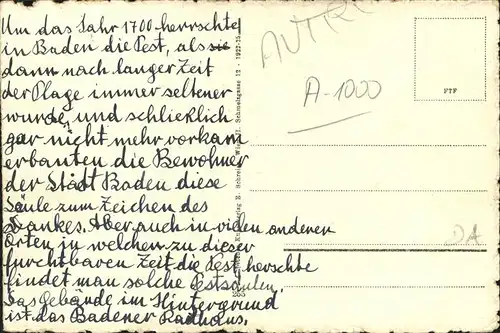 Um das Jahr 1700 herrschte
in Baden die Pest, als sie
dann nach langer Zeit
der Plage immer seltener
wurde, und schließlich
gar nicht mehr vorkam
erbauten die Bewohner
der Stadt Baden diese
Säule zum Zeichen des
Dankes. Aber auch in vielen anderen
Orten in welchen zu dieser
furchtbaren Zeit die Pest herschte
findet man solche Pestsäulen.
Das Gebäude im Hintergrund
ist das Badener Radhaus.
A-1000
FTF